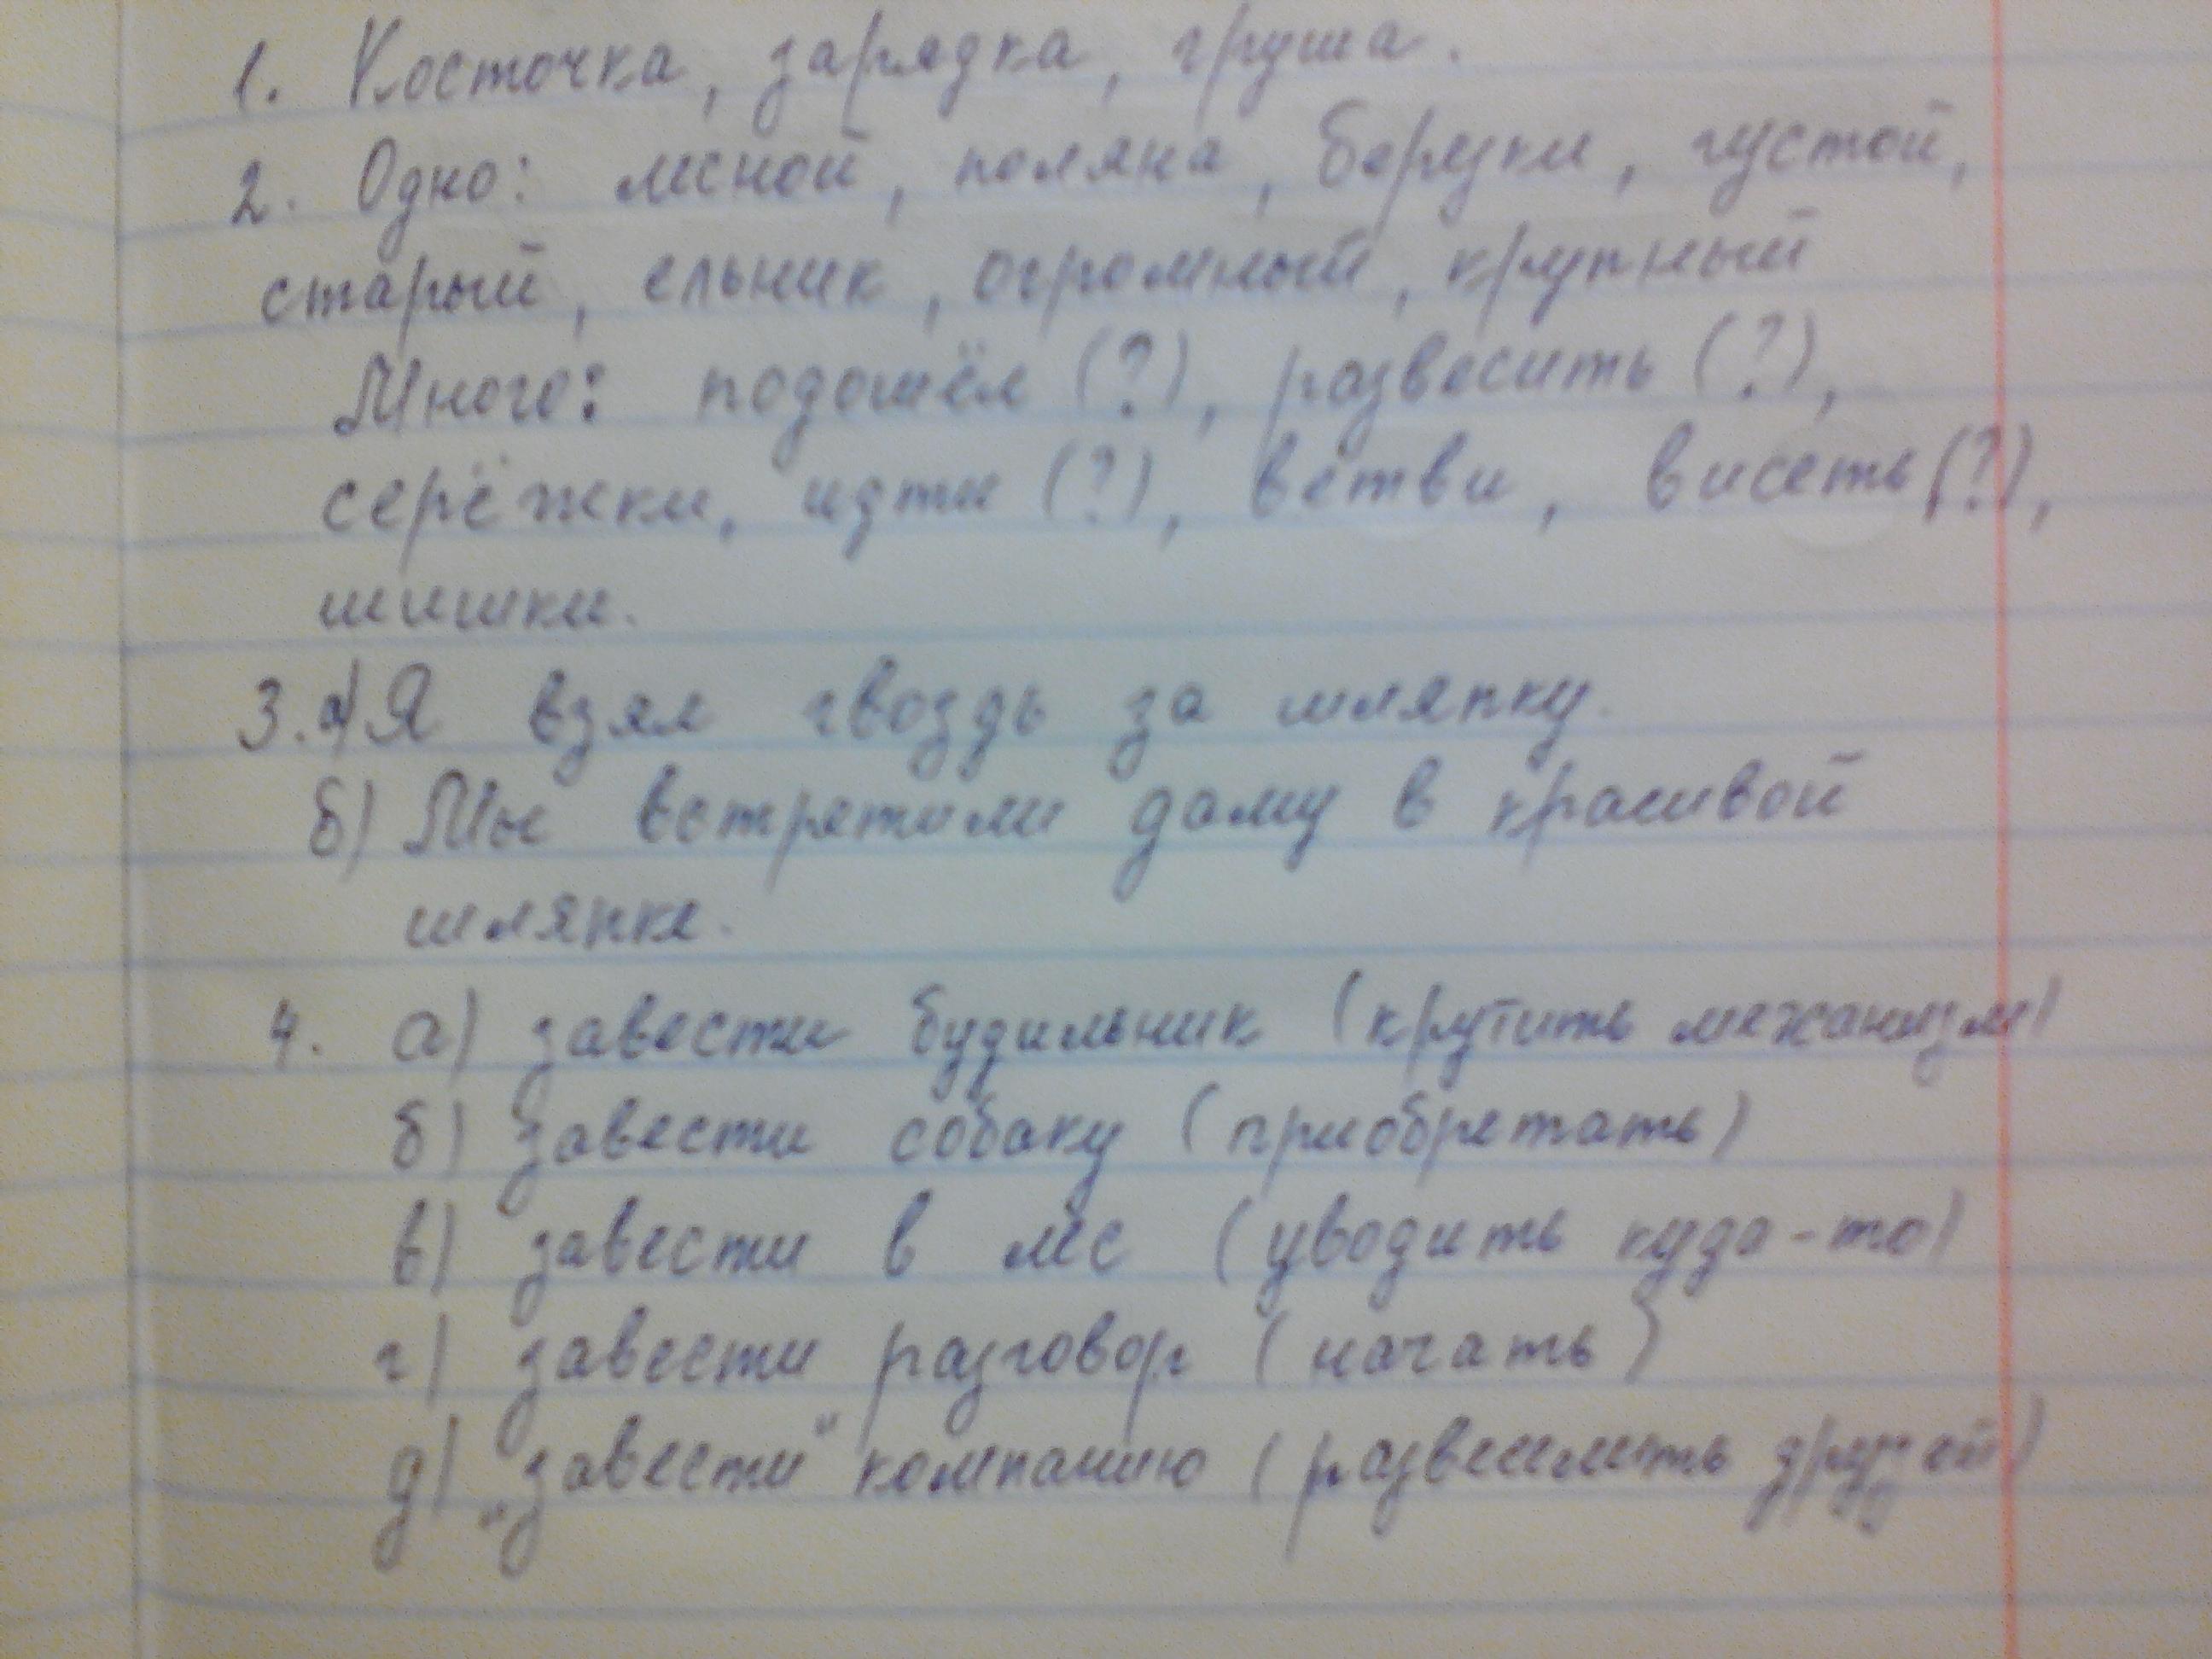 1. Косточка, зарядка, груша.
2. Одно: лесной, поляна, березки, густой,
старый, ельник, огромный, крупный
Много: подошёл (?), развесить (?),
серёжки, идти (?), ветви, висеть (?),
шишки.
3. а) Я взял гвоздь за шляпку.
б) Мы встретили даму в красивой
шляпке.
4. а) завести будильник (крутить механизм)
б) завести собаку (приобретать)
в) завести в лес (уводить куда-то)
г) завести разговор (начать)
д) „завести" компанию (развеселить друзей)